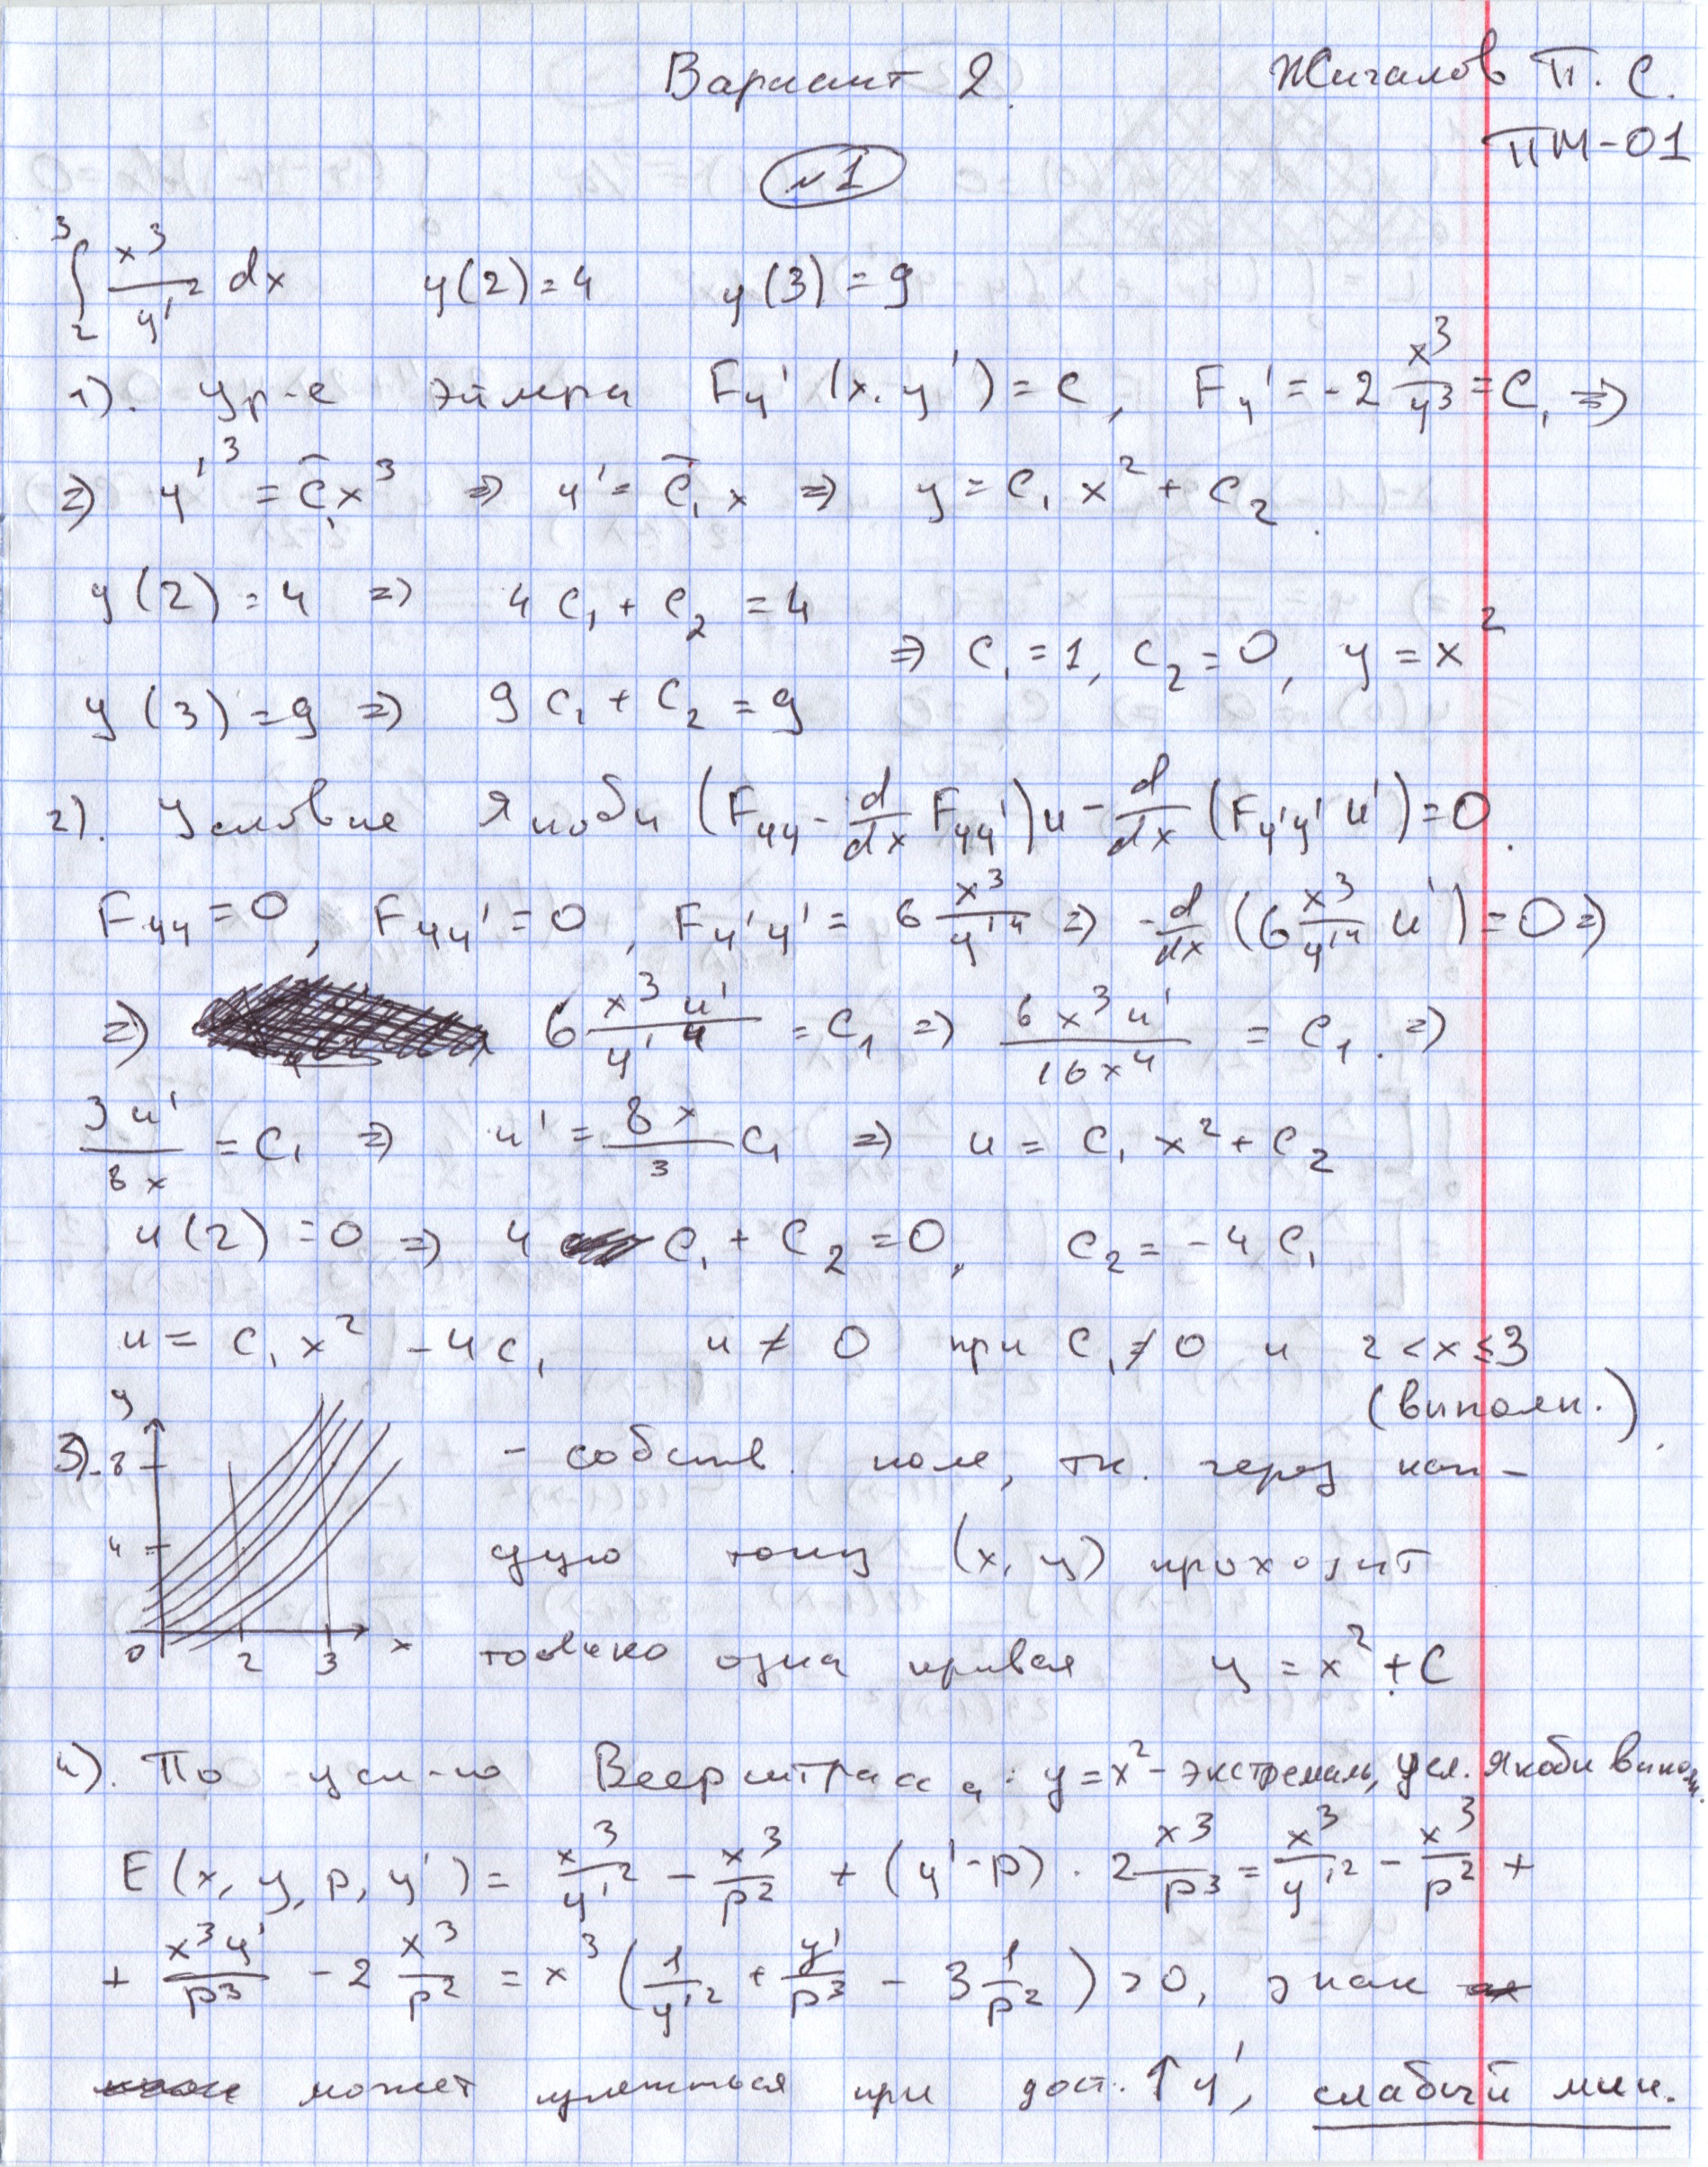 Вариант 2.
Жигалов П. С.
ПМ-01
№1
∫₂³ x³/y'² dx y(2)=4 y(3)=9
1). Ур-е Эйлера Fy'(x,y')=C, Fy'=-2 x³/y³=C₁ ⇒
⇒ y'³ = C̄₁x³ ⇒ y'=C̄₁x ⇒ y=C₁x²+C₂.
y(2)=4 ⇒ 4C₁+C₂=4
⇒ C₁=1, C₂=0, y=x²
y(3)=9 ⇒ 9C₁+C₂=9
2). Условие Якоби (Fyy - d/dx Fyy')u - d/dx (Fy'y' u')=0.
Fyy=0, Fyy'=0, Fy'y'= 6 x³/y'⁴ ⇒ -d/dx (6 x³/y'⁴ u')=0 ⇒
⇒ 6 x³u'/y'⁴ = C₁ ⇒ 6x³u'/16x⁴ = C₁. ⇒
3u'/8x = C₁ ⇒ u'= 8x/3 C₁ ⇒ u = C₁x²+C₂
u(2)=0 ⇒ 4 C₁+C₂=0, C₂=-4C₁
u= C₁x² -4C₁ u≠0 при C₁≠0 и 2<x≤3
(выполн.).
y
8
4
0 2 3 x
3). - собств. поле, тк. через каж-
дую точку (x, y) проходит
только одна кривая y=x²+C
4). По усл-ю Веерштрасса: y=x² - экстремаль, усл. Якоби выполн.
E(x,y,p,y')= x³/y'² - x³/p² + (y'-p)·2 x³/p³ = x³/y'² - x³/p² +
+ x³y'/p³ - 2 x³/p² = x³(1/y'² + y'/p³ - 3 1/p²) >0, знак
может меняться при дост. ↑y', слабый мин.